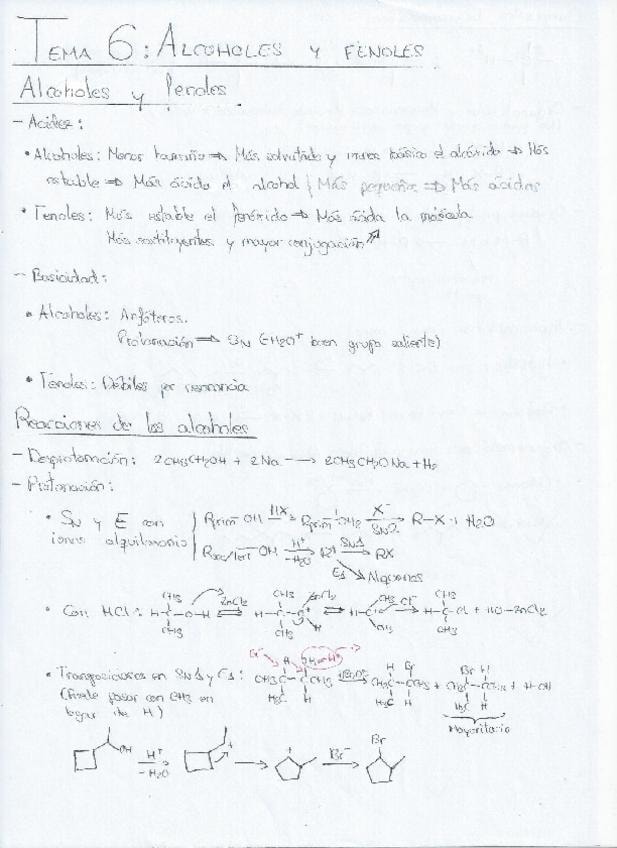 TEMA 6: ALCOHOLES Y FENOLES
Alcoholes y fenoles.
- Acidez:
• Alcoholes: Menor tamaño ⇒ Más solvatado y menos básico el alcóxido ⇒ Más
estable ⇒ Más ácido el alcohol / Más pequeños ⇒ Más ácidos
• Fenoles: Más estable el fenóxido ⇒ Más ácida la molécula
Más sustituyentes y mayor conjugación ↗
- Basicidad:
• Alcoholes: Anfóteros.
Protonación ⇒ SN (H2O+ buen grupo saliente)
• Fenoles: Débiles por resonancia
Reacciones de los alcoholes
- Desprotonación: 2CH3CH2OH + 2Na → 2CH3CH2ONa + H2
- Protonación:
• SN y E con iones alquiloxonio
Rprim OH HX→ Rprim OH2 X-→ SN2 R-X + H2O
Rsec/tert OH H+→ -H2O R+ SN1→ RX
E1 Alquenos
• Con HCl: CH3 H-C-O-H CH3 ZnCl2 ⇌ CH3 H-C-O+ CH3 H ZnCl2 ⇌ CH3 H-C+ CH3 Cl- → CH3 H-C-Cl CH3 + HO-ZnCl2
• Transposiciones en SN1 y E1:
(Puede pasar con CH3 en
lugar de H)
Br- H CH3C-CCH3 H3C H H Br CH3C-CCH3 H3C H + Br H H3C H + H-OH
Mayoritario
OH H+ -H2O → + → + Br- → Br